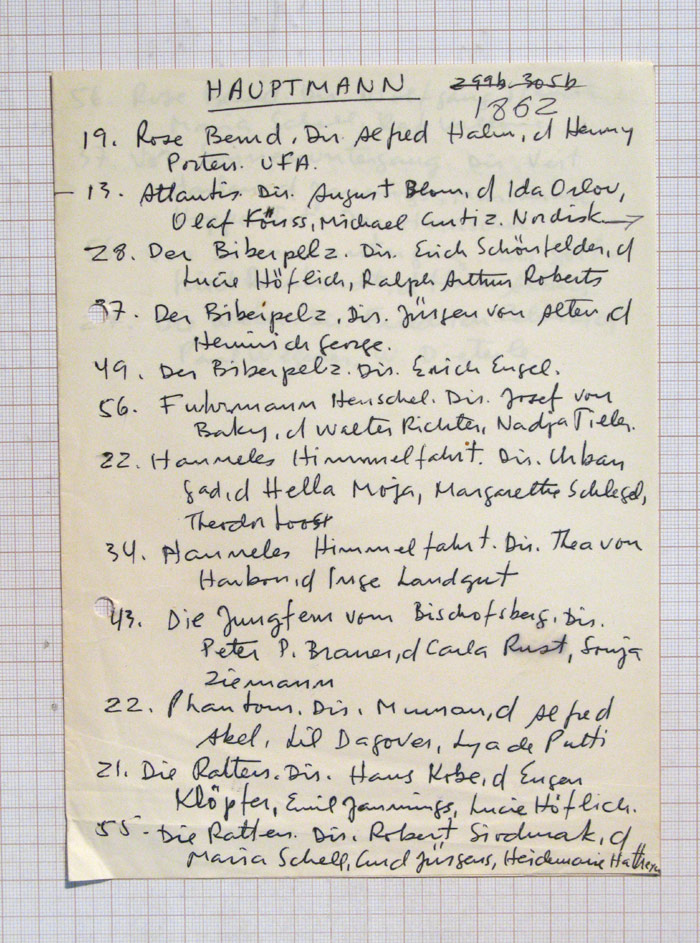 HAUPTMANN 299b 305b
1862
19. Rose Bernd. Dir. Alfred Halm, d Henny
Porten. UFA.
13. Atlantis. Dir. August Blom, d Ida Orlov,
Olaf Fönss, Michael Curtiz. Nordisk →
28. Der Biberpelz. Dir. Erich Schönfelder, d
Lucie Höflich, Ralph Arthur Roberts
37. Der Biberpelz. Dir. Jürgen von Alten, d
Heinrich George.
49. Der Biberpelz. Dir. Erich Engel.
56. Fuhrmann Henschel. Dir. Josef von
Baky, d Walter Richter, Nadja Tiller.
22. Hanneles Himmelfahrt. Dir. Urban
Gad, d Hella Moja, Margarethe Schlegel,
Theodor Loos
34. Hanneles Himmelfahrt. Dir. Thea von
Harbou, d Inge Landgut
43. Die Jungfern vom Bischofsberg. Dir.
Peter P. Brauer, d Carla Rust, Sonja
Ziemann
22. Phantom. Dir. Murnau, d Alfred
Abel, Lil Dagover, Lya de Putti
21. Die Ratten. Dir. Hans Kobe, d Eugen
Klöpfer, Emil Jannings, Lucie Höflich.
55. Die Ratten. Dir. Robert Siodmak, d
Maria Schell, Curd Jürgens, Heidemarie Hatheyer